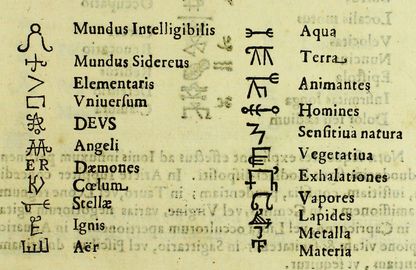 Mundus Intelligibilis
Mundus Sidereus
Elementaris
Vniuersum
DEVS
Angeli
ER Dæmones
Cœlum
Stellæ
Ignis
Aër
Aqua
Terra
Animantes
Homines
Sensitiua natura
Vegetatiua
Exhalationes
Vapores
Lapides
Metalla
Materia